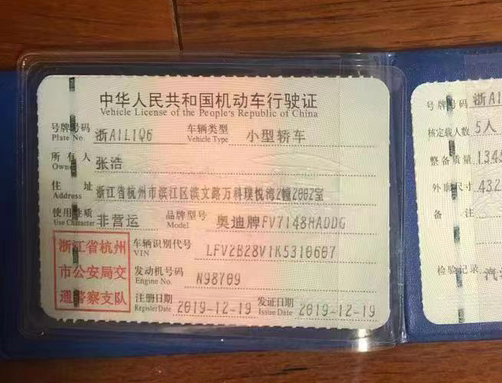 中华人民共和国机动车行驶证
Vehicle License of the People's Republic of China
号牌号码 Plate No. 浙A1L1Q6 车辆类型 Vehicle Type 小型轿车
所有人 Owner 张浩
住址 Address 浙江省杭州市滨江区滨文路万科璞悦湾2幢2002室
使用性质 Use Character 非营运 品牌型号 Model 奥迪牌FV7148HADDG
浙江省杭州
市公安局交
通警察支队
车辆识别代号 VIN LFV2B28V1K5310607
发动机号码 Engine No. N98709
注册日期 Register Date 2019-12-19 发证日期 Issue Date 2019-12-19
号牌号码 浙A1
核定载人数 5人
整备质量 134
外廓尺寸 432
检验记录